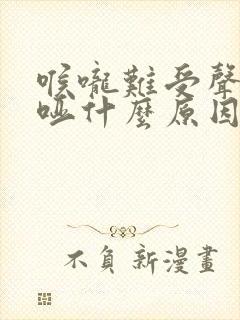 喉嚨難受聲
啞什麼原因
不負新漫畫